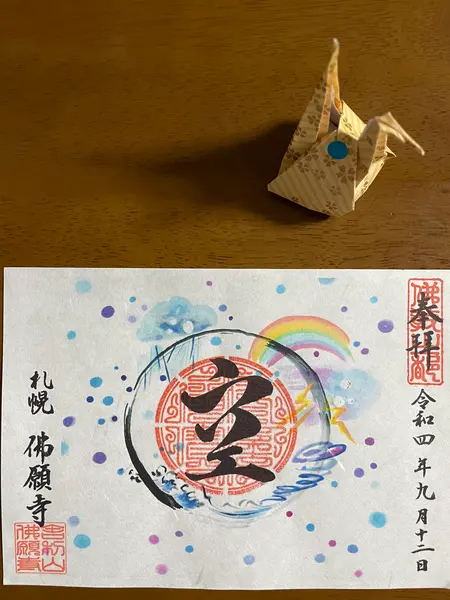 奉拝
令和四年九月十二日
空
札幌 佛願寺